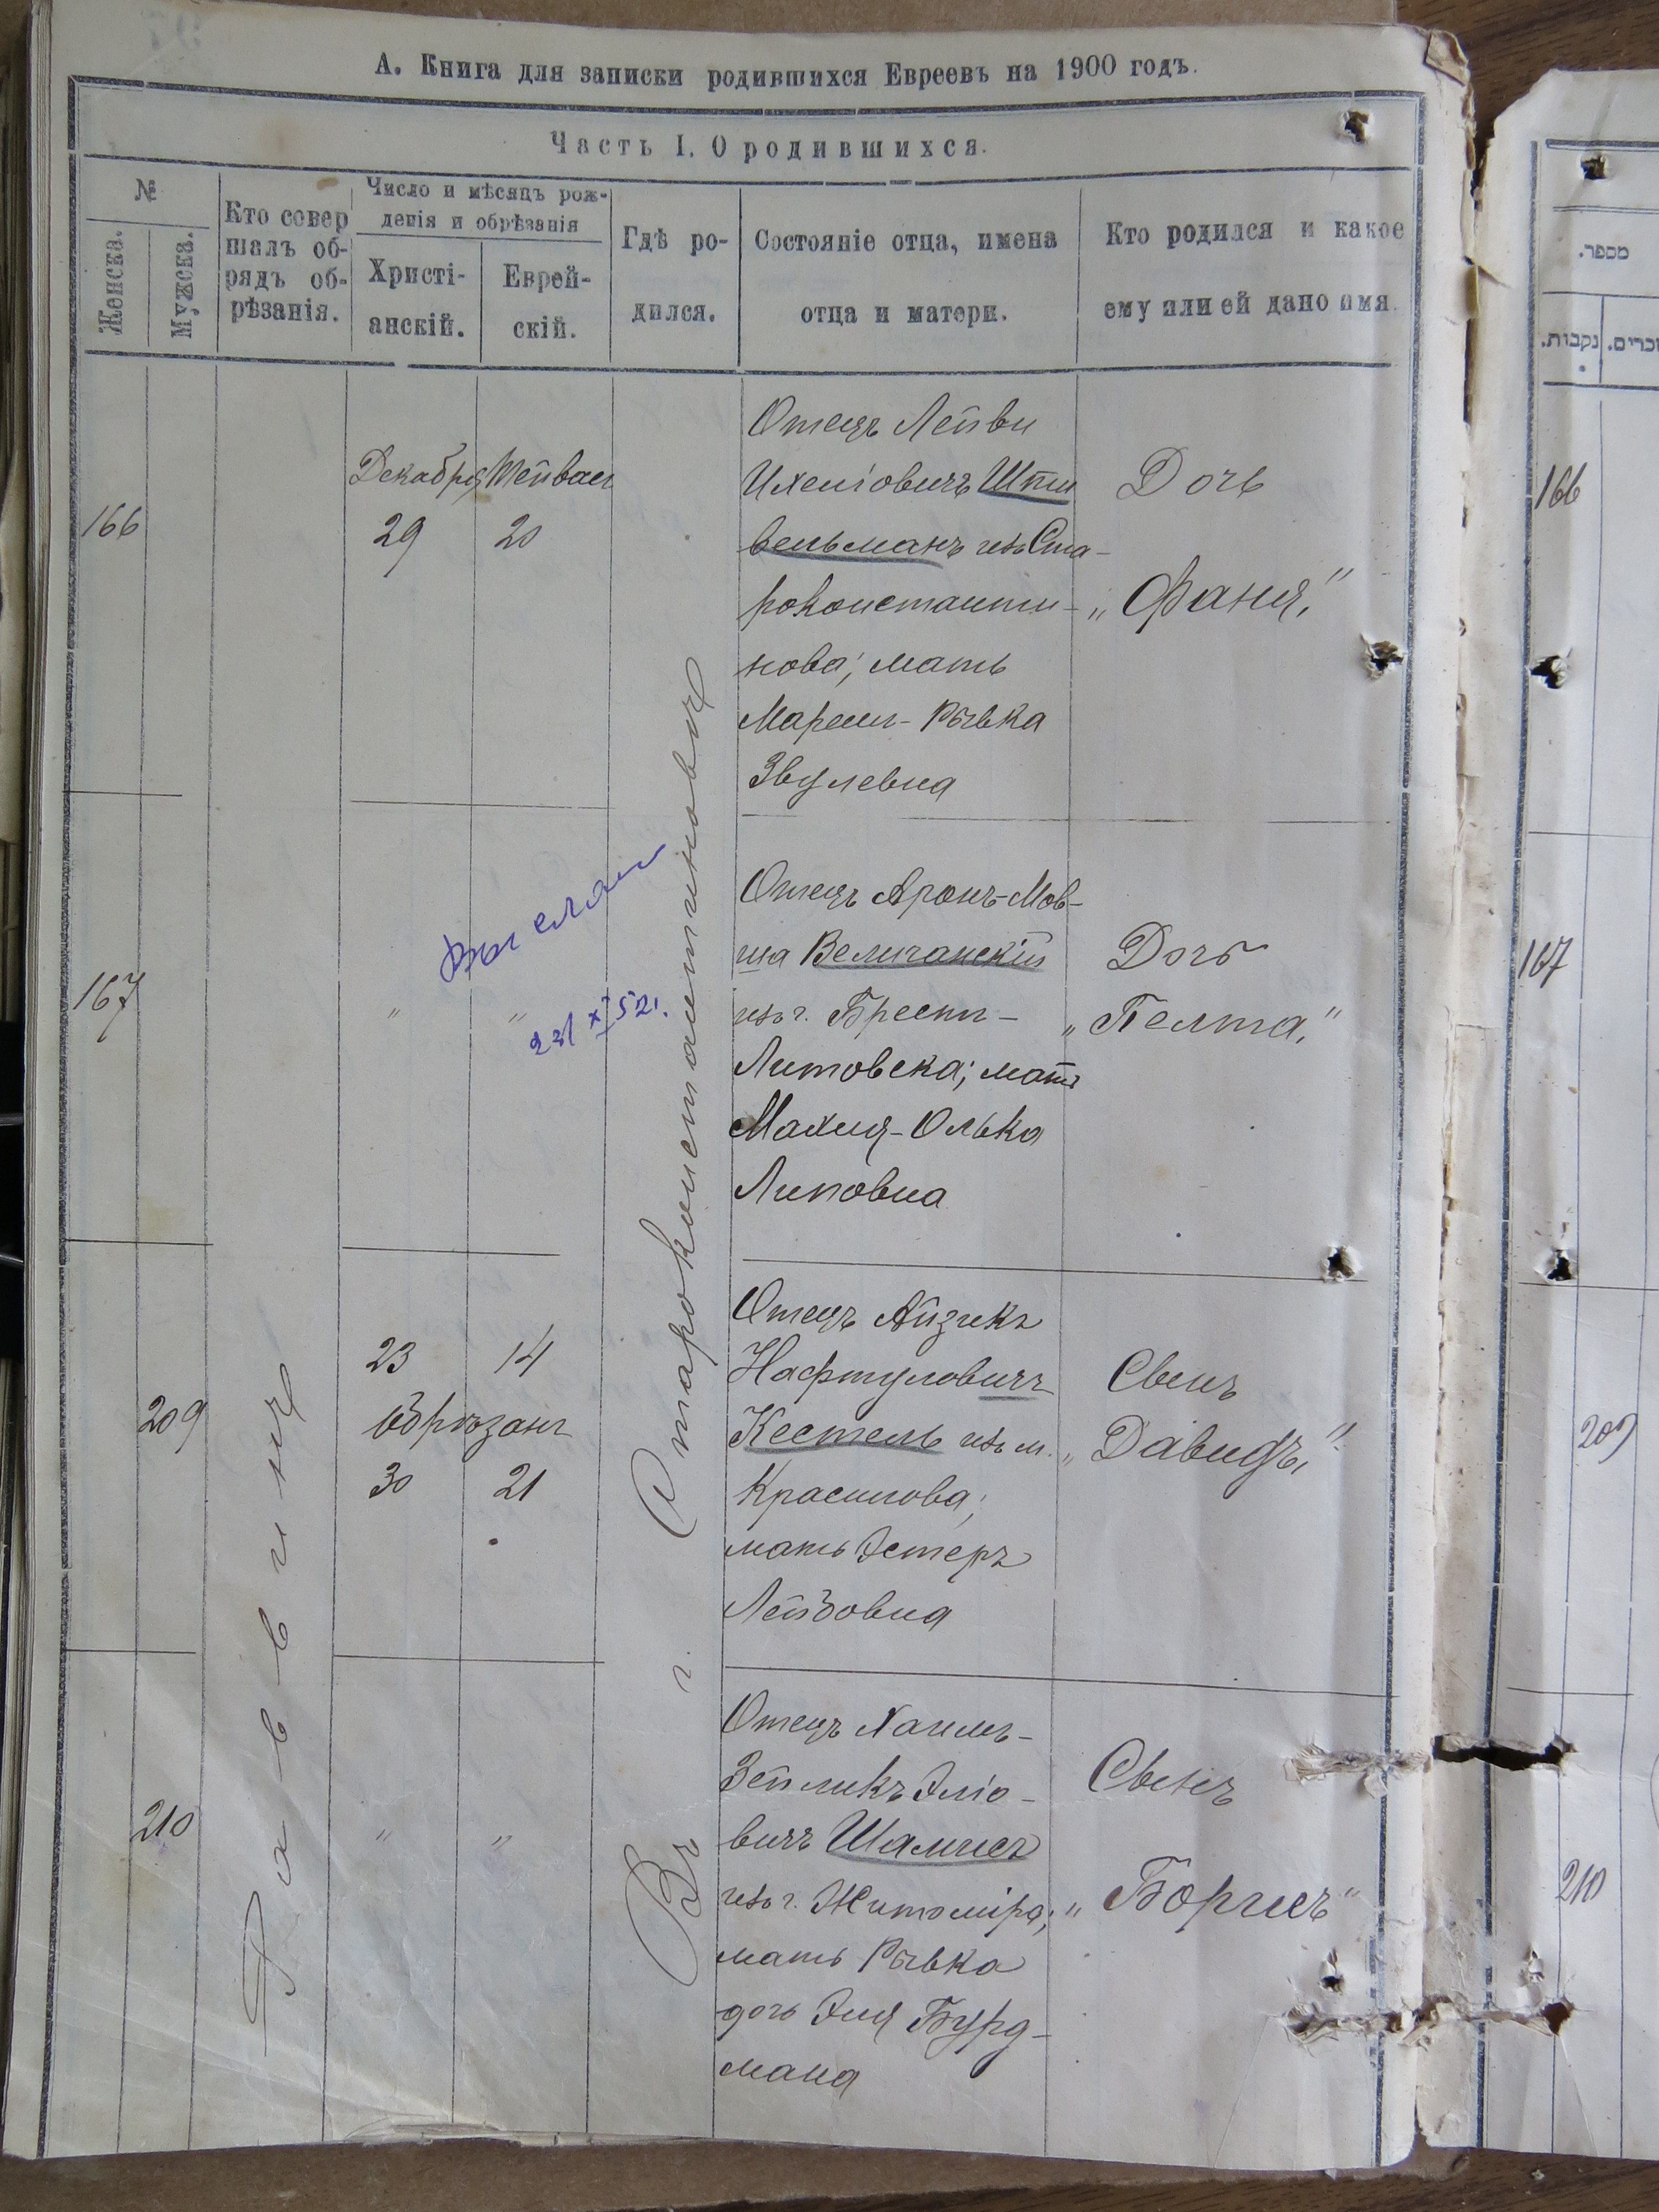 А. Книга для записки родившихся Евреевъ на 1900 годъ.
Часть I. О родившихся.
№
Женска.
Мужска.
Кто совер
шалъ об-
рядъ об-
рѣзанія.
Число и мѣсяцъ рож-
денія и обрѣзанія
Христі-
анскій.
Еврей-
скій.
Гдѣ ро-
дился.
Состояніе отца, имена
отца и матери.
Кто родился и какое
ему или ей дано имя.
Раввинъ
Въ г. Староконстантиновѣ
166
Декабря
29
Тейвас
20
Отецъ Лейви
Ихелiовичъ Шпи
вельманъ изъ Ста-
роконстанти-
нова; мать
Марьем-Рывка
Звулевна
Дочь
„Фаня."
167
"
"
231 X 52.
Отецъ Аронъ-Мов-
ша Величанскій
изъ г. Брест-
Литовска; мать
Махня-Олька
Липовна
Дочь
„Пелта."
209
23
14
Обрѣзанъ
30
21
Отецъ Айзикъ
Нафтуловичъ
Кестель изъ м.
Красилова;
мать Эстеръ
Лейбовна
Сынъ
„Давидъ."
210
"
"
Отецъ Хаимъ-
Зейликъ Эліо-
вичъ Шамисъ
изъ г. Житоміра;
мать Рывка
дочь Эля Бурд-
мана
Сынъ
„Борисъ"
מספר.
נקבות.
זכרים.
166
167
209
210